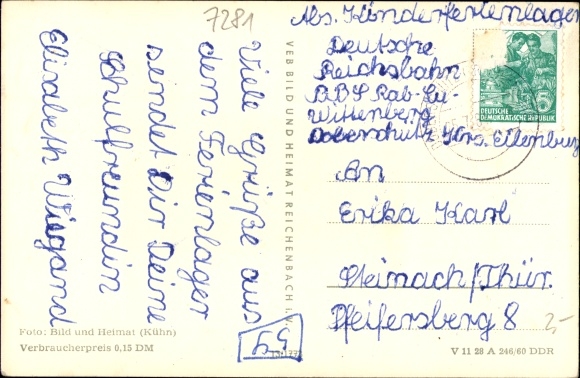 7281
Viele Grüße aus
dem Ferienlager
sendet Dir Deine
Schulfreundin
Elisabeth Wiegand
VEB BILD UND HEIMAT REICHENBACH i. V.
Abs. Kinderferienlager
Deutsche
Reichsbahn
Wittenberg
Doberschütz Krs. Eilenburg
DEUTSCHE
DEMOKRATISCHE REPUBLIK
5
An
Erika Karl
Steinach/Thür.
Pfeifersberg 8
59
2,-
Foto: Bild und Heimat (Kühn)
Verbraucherpreis 0,15 DM
V 11 28 A 246/60 DDR